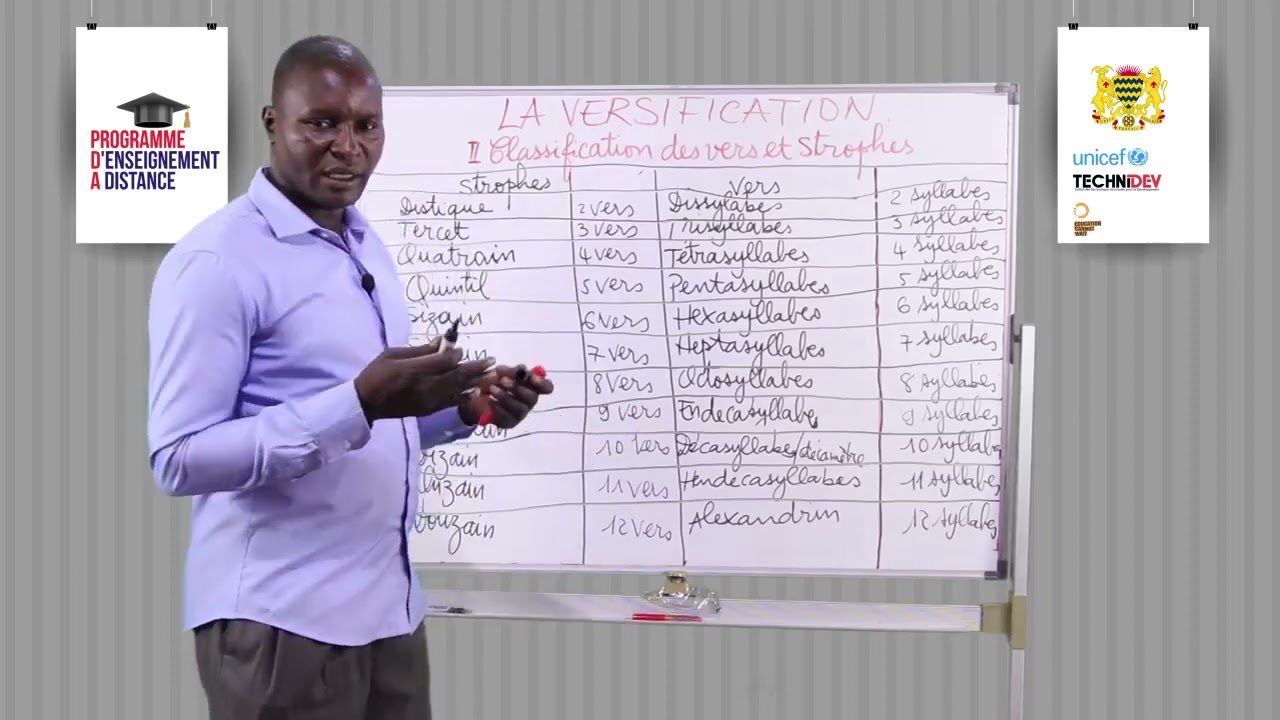 PROGRAMME
D'ENSEIGNEMENT
A DISTANCE
LA VERSIFICATION
II Classification des vers et Strophes
Strophes Vers
Distique 2 vers Dissylabes 2 syllabes
Tercet 3 vers Trisyllabes 3 syllabes
Quatrain 4 vers Tétrasyllabes 4 syllabes
Quintil 5 vers Pentasyllabes 5 syllabes
Sizain 6 vers Hexasyllabes 6 syllabes
7 vers Heptasyllabes 7 syllabes
8 vers Octosyllabes 8 syllabes
9 vers Endecasyllabes 9 syllabes
10 vers Décasyllabes/décamètre 10 syllabes
11 vers Hendecasyllabes 11 syllabes
12 vers Alexandrin 12 syllabes
unicef
TECHNiDEV
EDUCATION
CANNOT
WAIT